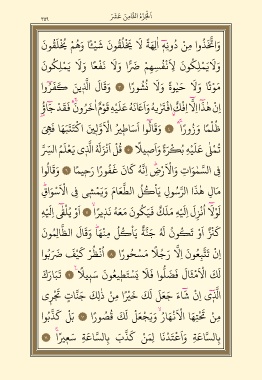 اَلْجُزْءُ الثَّامِنُ عَشَرَ
٣٥٩
وَاتَّخَذُوا مِنْ دُونِهٖٓ اٰلِهَةً لَا يَخْلُقُونَ شَيْـًٔا وَهُمْ يُخْلَقُونَ
وَلَا يَمْلِكُونَ لِاَنْفُسِهِمْ ضَرًّا وَلَا نَفْعًا وَلَا يَمْلِكُونَ
مَوْتًا وَلَا حَيٰوةً وَلَا نُشُورًا ۝ وَقَالَ الَّذٖينَ كَفَرُٓوا
اِنْ هٰذَٓا اِلَّٓا اِفْكٌ افْتَرٰيهُ وَاَعَانَهُ عَلَيْهِ قَوْمٌ اٰخَرُونَۚ فَقَدْ جَٓاؤُ۫
ظُلْمًا وَزُورًاۚ ۝ وَقَالُٓوا اَسَاطٖيرُ الْاَوَّلٖينَ اكْتَتَبَهَا فَهِيَ
تُمْلٰى عَلَيْهِ بُكْرَةً وَاَصٖيلًا ۝ قُلْ اَنْزَلَهُ الَّذٖي يَعْلَمُ السِّرَّ
فِي السَّمٰوَاتِ وَالْاَرْضِۜ اِنَّهُ كَانَ غَفُورًا رَحٖيمًا ۝ وَقَالُوا
مَالِ هٰذَا الرَّسُولِ يَأْكُلُ الطَّعَامَ وَيَمْشٖي فِي الْاَسْوَاقِۜ
لَوْلَٓا اُنْزِلَ اِلَيْهِ مَلَكٌ فَيَكُونَ مَعَهُ نَذٖيرًاۙ ۝ اَوْ يُلْقٰٓى اِلَيْهِ
كَنْزٌ اَوْ تَكُونُ لَهُ جَنَّةٌ يَأْكُلُ مِنْهَاۜ وَقَالَ الظَّالِمُونَ
اِنْ تَتَّبِعُونَ اِلَّا رَجُلًا مَسْحُورًا ۝ اُنْظُرْ كَيْفَ ضَرَبُوا
لَكَ الْاَمْثَالَ فَضَلُّوا فَلَا يَسْتَطٖيعُونَ سَبٖيلًا۟ ۝ تَبَارَكَ
الَّذٖٓي اِنْ شَٓاءَ جَعَلَ لَكَ خَيْرًا مِنْ ذٰلِكَ جَنَّاتٍ تَجْرٖي
مِنْ تَحْتِهَا الْاَنْهَارُۙ وَيَجْعَلْ لَكَ قُصُورًا ۝ بَلْ كَذَّبُوا
بِالسَّاعَةِ وَاَعْتَدْنَا لِمَنْ كَذَّبَ بِالسَّاعَةِ سَعٖيرًاۚ ۝